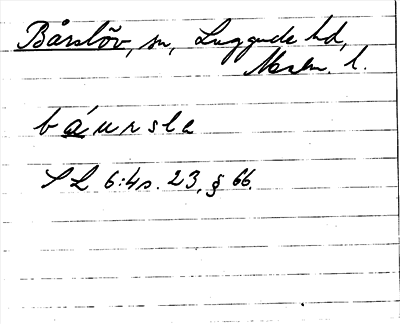 Bårslöv, sn, Luggude hd,
Malm. l.
báursla
SL 6:4 s. 23, § 66.